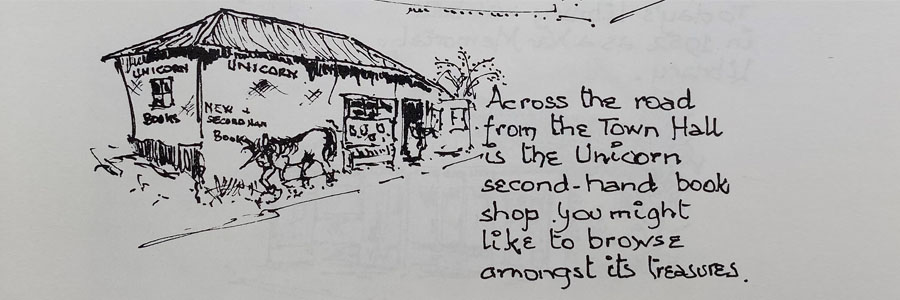 UNICORN
BOOKS
UNICORN
NEW +
SECOND HAN
BOOK
Across the road
from the Town Hall
is the Unicorn
second-hand book
shop. You might
like to browse
amongst its treasures.